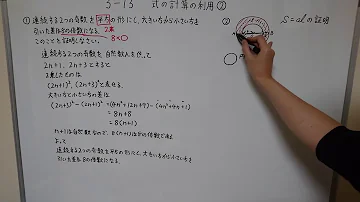 5-13 式の計算の利用②
① 連続する2つの奇数を平方の形にし、大きい方から小さい方を
引いた差は8の倍数になる。 2乗
このことを証明しなさい。 8×○
連続する2つの奇数を自然数nを使って
2n+1, 2n+3とすると
2乗したものは
(2n+1)², (2n+3)²と表せる。
大きい方と小さい方の差は
(2n+3)²-(2n+1)²=(4n²+12n+9)-(4n²+4n+1)
=8n+8
=8(n+1)
n+1は自然数なので、8(n+1)は8の倍数である
よって
連続する2つの奇数を平方の形にし、大きい方から小さい方を
引いた差は8の倍数になる。
② S=alの証明